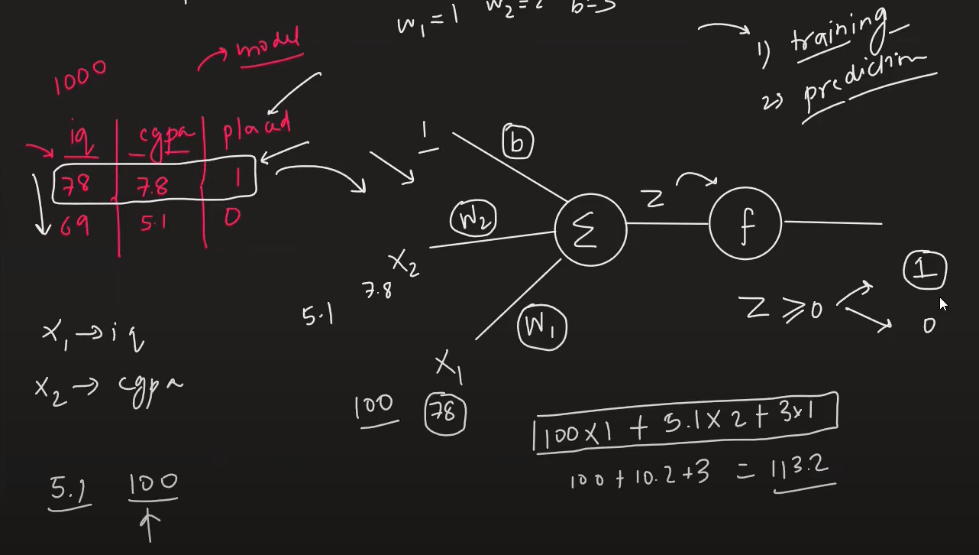 w₁=1 w₂=2 b=3
1) training
2) prediction
→ model
1000
iq cgpa placed
78 7.8 1
69 5.1 0
1 b
w₂ Σ Z f
x₂
7.8
5.1
w₁
x₁
100 78
1
Z ≥ 0
0
x₁ → iq
x₂ → cgpa
100×1 + 5.1×2 + 3×1
100 + 10.2 + 3 = 113.2
5.1 100